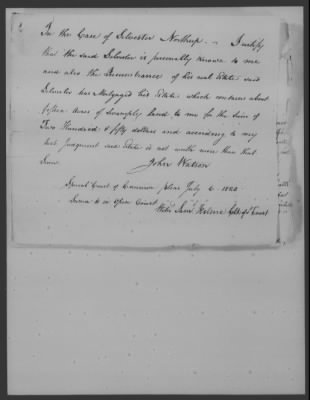 In the Case of Silvester Northup. — I certify
that the said Silvester is personally known to me
and also the Incumbrance of his real Estate: said
Silvester has Mortgaged his Estate which contains about
fifteen Acres of Swamply land to me for the Sum of
Two Hundred & fifty dollars and according to my
best Judgment said Estate is not worth more than that
Sum.
John Watson
Special Court of Common pleas July 6 1820
Sworn to in Open Court
Saml Helme Clk of sd Court